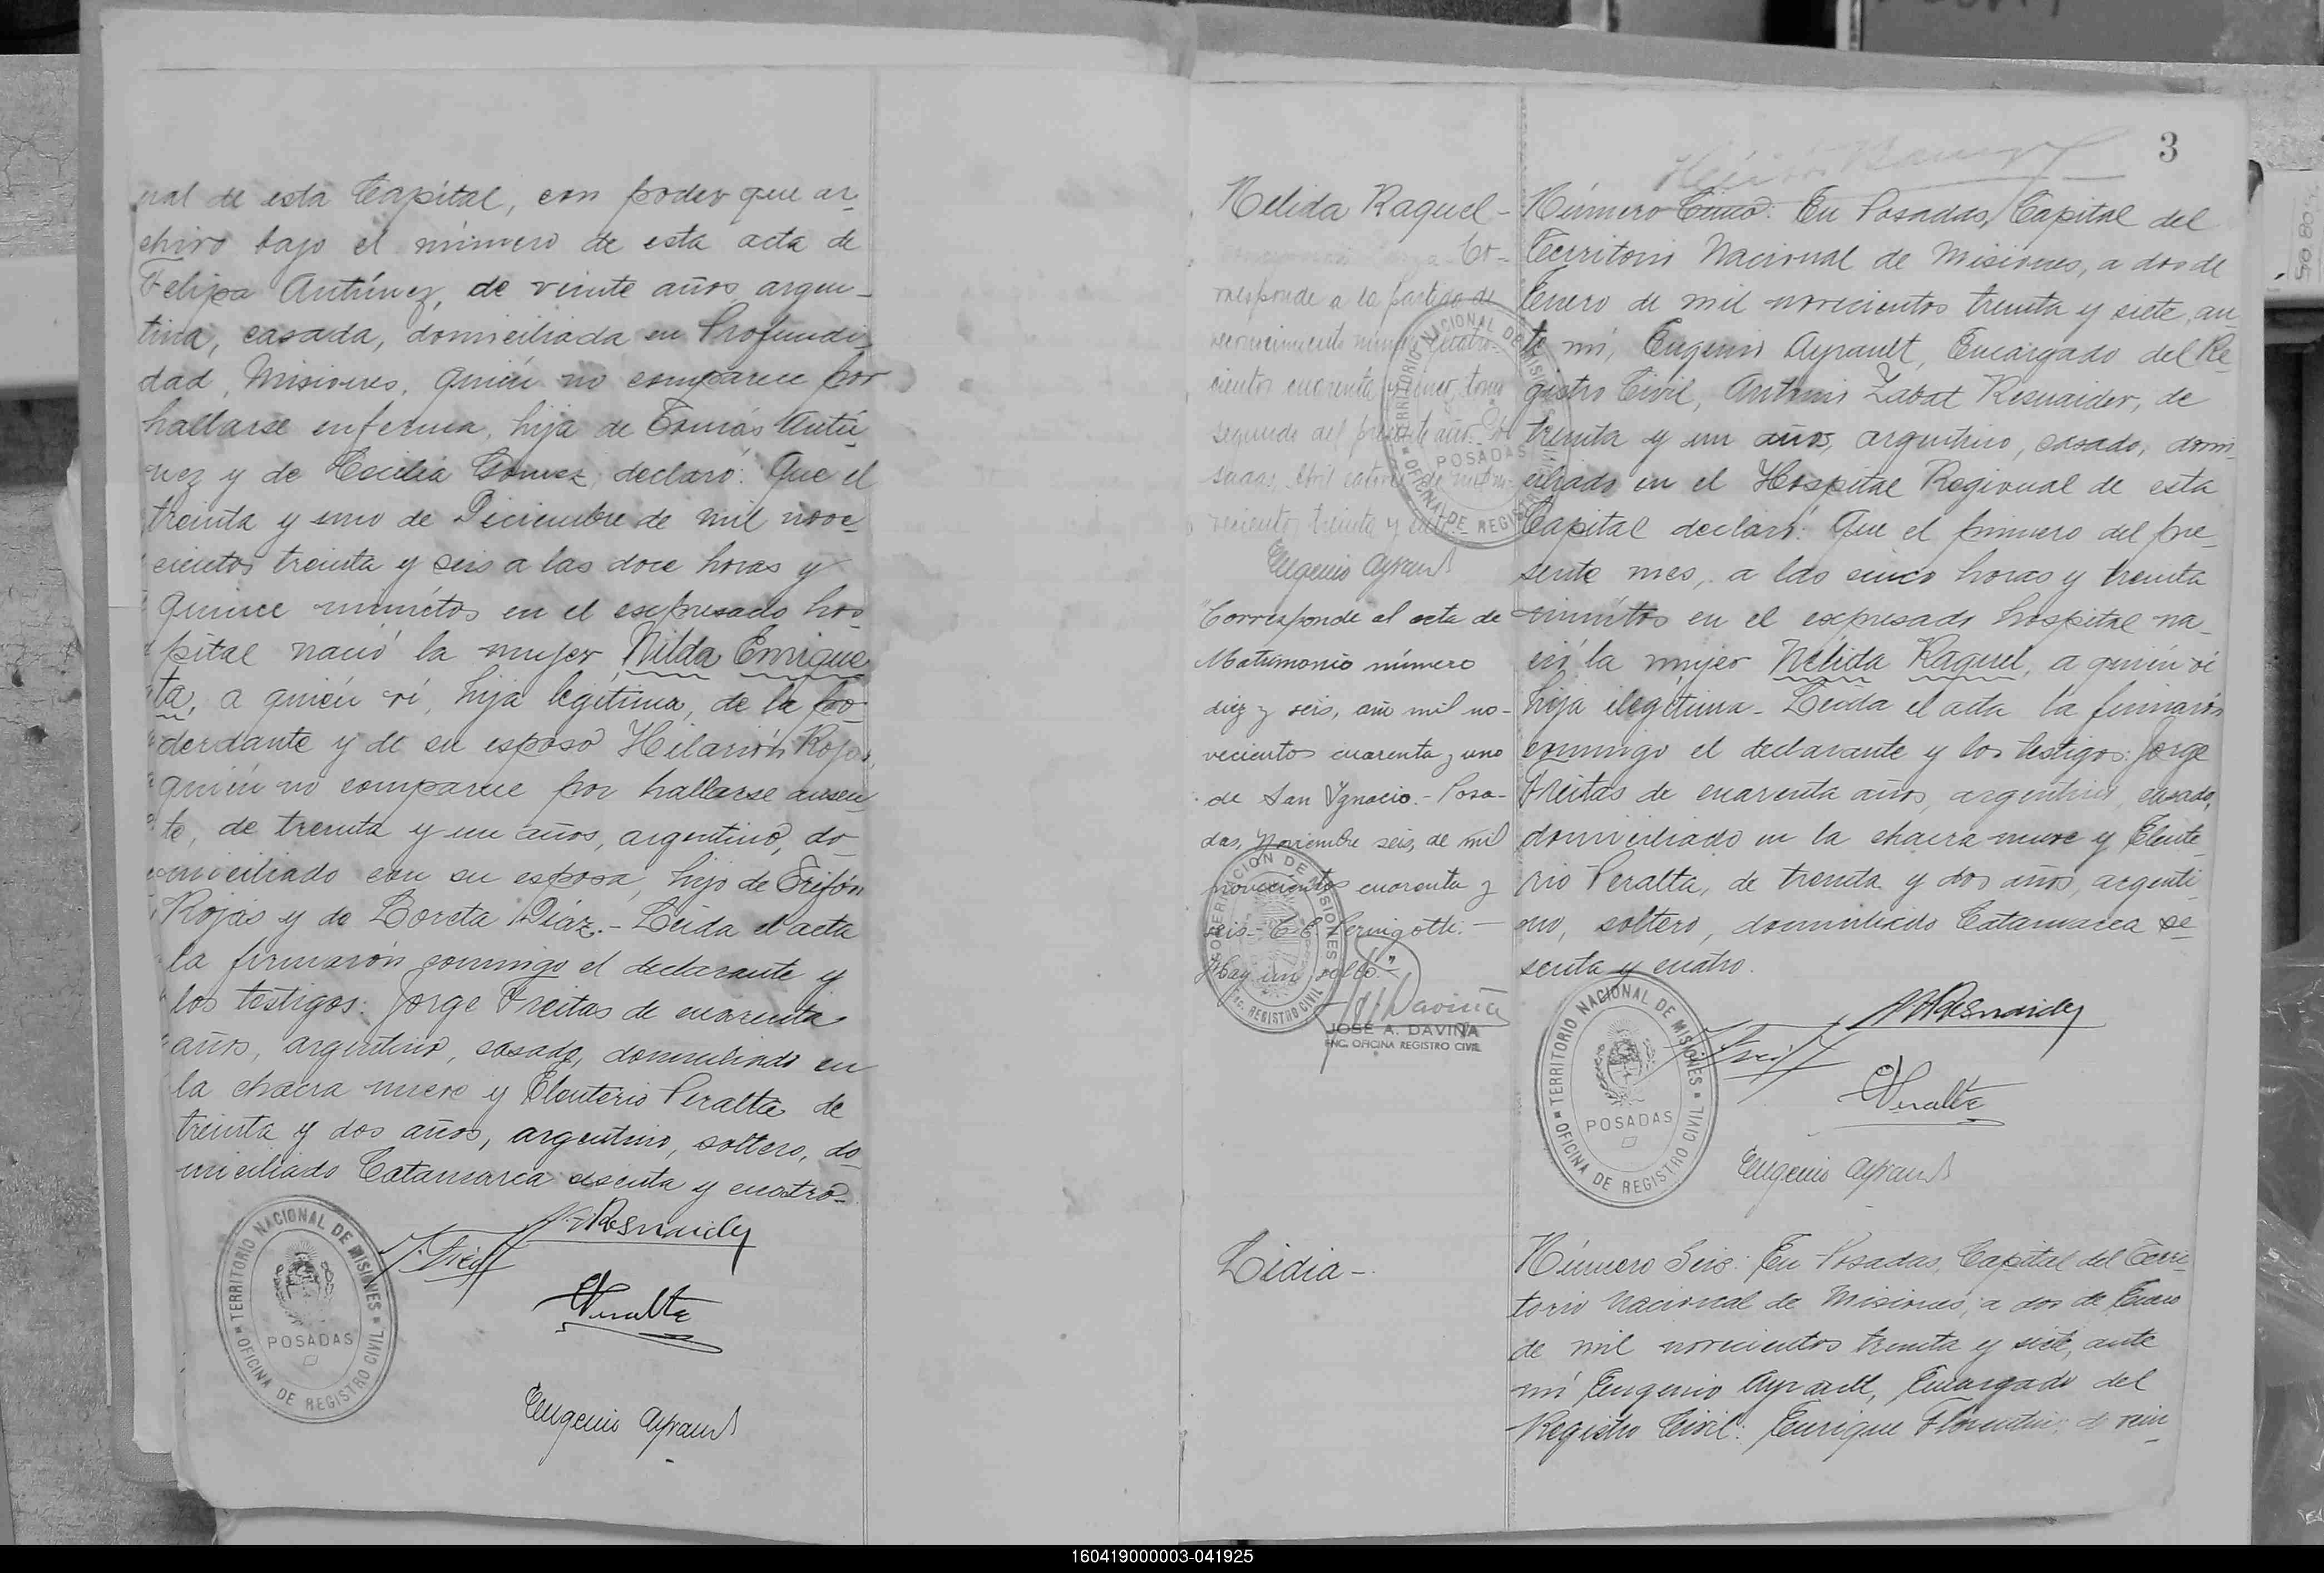 nal de esta Capital, con poder que ar-
chivo bajo el número de esta acta de
Felipa Antúnez, de veinte años argen-
tina, casada, domiciliada en Profundi-
dad, Misiones, quién no comparece por
hallarse enferma, hija de Tomás Antú-
nez y de Cecilia Gomez, declaró: Que el
treinta y uno de Diciembre de mil nove-
cientos treinta y seis a las doce horas y
quince minutos en el expresado hos-
pital nació la mujer Nilda Enrique
ta, a quién ví, hija legítima, de la po-
derdante y de su esposo Hilarión Rojas,
quién no comparece por hallarse ausen-
te, de treinta y un años, argentino, do-
miciliado con su esposa, hijo de Trifón
Rojas y de Loreta Díaz.- Leida el acta
la firmarón conmigo el declarante y
los testigos: Jorge Freitas de cuarenta
años, argentino, casado, domiciliado en
la chacra nueve y Eleuterio Peralta de
treinta y dos años, argentino, soltero, do-
miciliado Catamarca sesenta y cuatro.-
Resnaider
J. Freitas
Peralta
TERRITORIO NACIONAL DE MISIONES
POSADAS
OFICINA DE REGISTRO CIVIL
Eugenio Ayrault
3
Nelida Raquel-
Co-
rresponde a la partida de
reconocimiento número cuatro-
cientos cuarenta tomo
segundo del presente año. Po
sadas, Abril catorce de mil no-
vecientos treinta y
Eugenio Ayrault
"Corresponde al acta de
Matrimonio número
diez y seis, año mil no-
vecientos cuarenta y uno
de San Ygnacio.- Posa-
das, Noviembre seis, de mil
novecientos cuarenta y
seis- Peringotti.-
Hay un sello."
GOBERNACION DE MISIONES
REGISTRO CIVIL
Daviña
JOSÉ A. DAVIÑA
ENC. OFICINA REGISTRO CIVIL
Número Cinco: En Posadas, Capital del
Territorio Nacional de Misiones, a dos de
Enero de mil novecientos treinta y siete, an-
te mí, Eugenio Ayrault, Encargado del Re-
gistro Civil, Antonio Zabat Resnaider, de
treinta y un años, argentino, casado, domi-
ciliado en el Hospital Regional de esta
Capital declaró: Que el primero del pre-
sente mes, a las cinco horas y treinta
minutos en el expresado hospital na-
ció la mujer Nélida Raquel, a quién ví
hija ilegítima- Leida el acta la firmarón
conmigo el declarante y los testigos: Jorge
Freitas de cuarenta años, argentino, casado,
domiciliado en la chacra nueve y Eleute-
rio Peralta, de treinta y dos años, argenti-
no, soltero, domiciliado Catamarca se-
senta y cuatro.
Resnaider
J. Freitas
Peralta
TERRITORIO NACIONAL DE MISIONES
POSADAS
OFICINA DE REGISTRO CIVIL
Eugenio Ayrault
Lidia-
Número Seis: En Posadas, Capital del Terri-
torio Nacional de Misiones, a dos de Enero
de mil novecientos treinta y siete, ante
mí Eugenio Ayrault, Encargado del
Registro Civil: Enrique Florentin, de vein-
160419000003-041925